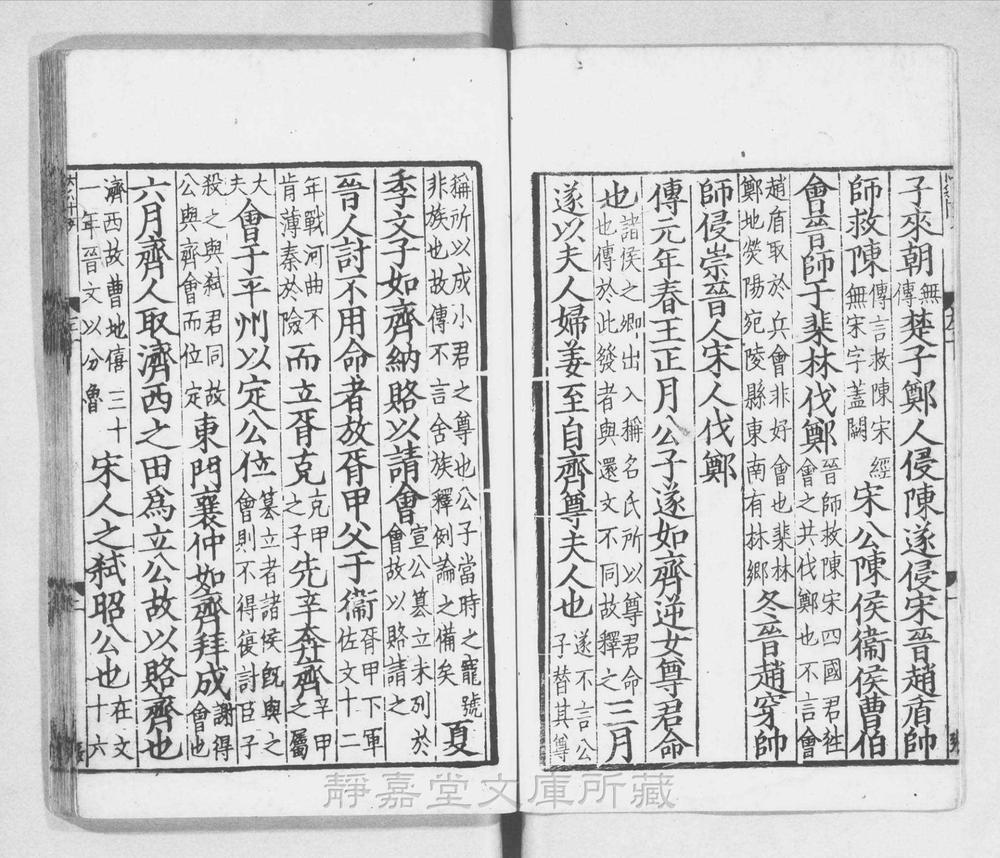 子來朝無傳楚子鄭人侵陳遂侵宋晉趙盾帥
師救陳傳言救陳宋經無宋字蓋闕宋公陳侯衞侯曹伯
會晉師于棐林伐鄭晉師救陳宋四國君徃會之共伐鄭也不言會
趙盾取於兵會非好會也棐林鄭地熒陽宛陵縣東南有林鄉冬晉趙穿帥
師侵崇晉人宋人伐鄭
傳元年春王正月公子遂如齊逆女尊君命
也諸侯之卿出入稱名氏所以尊君命也傳於此發者與還文不同故釋之三月
遂以夫人婦姜至自齊尊夫人也遂不言公子替其尊
稱所以成小君之尊也公子當時之寵號非族也故傳不言舍族釋例論之備矣夏
季文子如齊納賂以請會宣公篡立未列於會故以賂請之
晉人討不用命者放胥甲父于衞胥甲下軍佐文十二
年戰河曲不肯薄秦於險而立胥克克甲之子先辛奔齊辛甲之屬
大夫會于平州以定公位篡立者諸侯旣與之會則不得復討臣子
殺之與弒君同故公與齊會而位定東門襄仲如齊拜成謝得會也
六月齊人取濟西之田爲立公故以賂齊也
濟西故曹地僖三十一年晉文以分魯宋人之弒昭公也在文十六
靜嘉堂文庫所藏